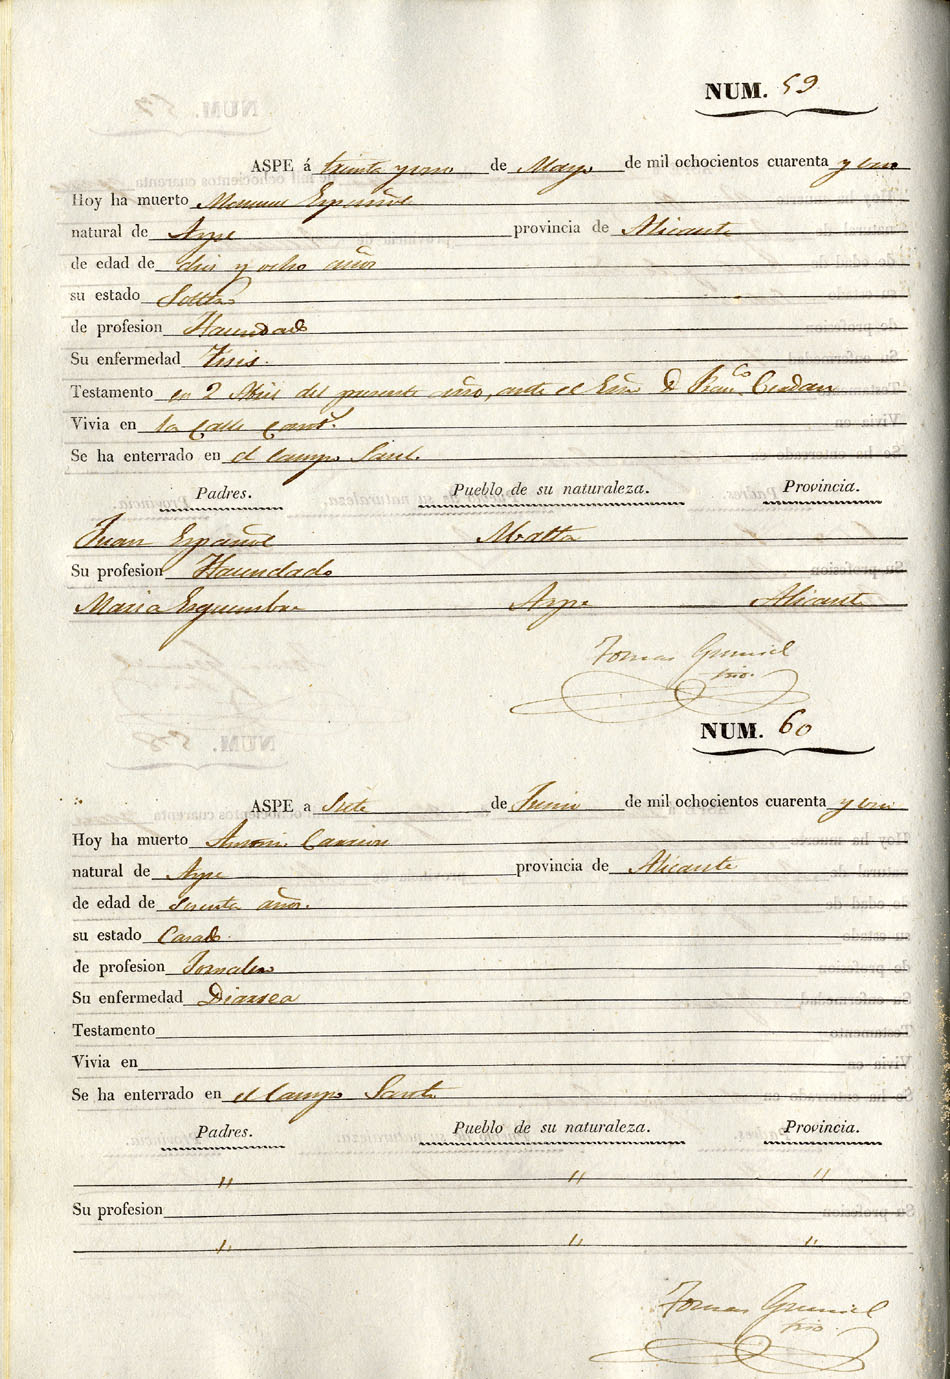 NUM. 59
ASPE á treinta y uno de Mayo de mil ochocientos cuarenta y uno
Hoy ha muerto Español
natural de Aspe provincia de Alicante
de edad de diez y ocho años
su estado Soltero
de profesion Hacendado
Su enfermedad Tisis.
Testamento en 2 Abril del presente año, ante el Esno. D. Franco.
Vivia en la Calle
Se ha enterrado en el Campo Santo.
Padres. Pueblo de su naturaleza. Provincia.
Juan Español Malta
Su profesion Hacendado
Maria Aspe Alicante
Tomas
NUM. 60
ASPE a Siete de Junio de mil ochocientos cuarenta y uno
Hoy ha muerto Antonio Carrion
natural de Aspe provincia de Alicante
de edad de años.
su estado Casado.
de profesion Jornalero
Su enfermedad Diarrea
Testamento
Vivia en
Se ha enterrado en el Campo Santo
Padres. Pueblo de su naturaleza. Provincia.
" " "
Su profesion
" " "
Tomas